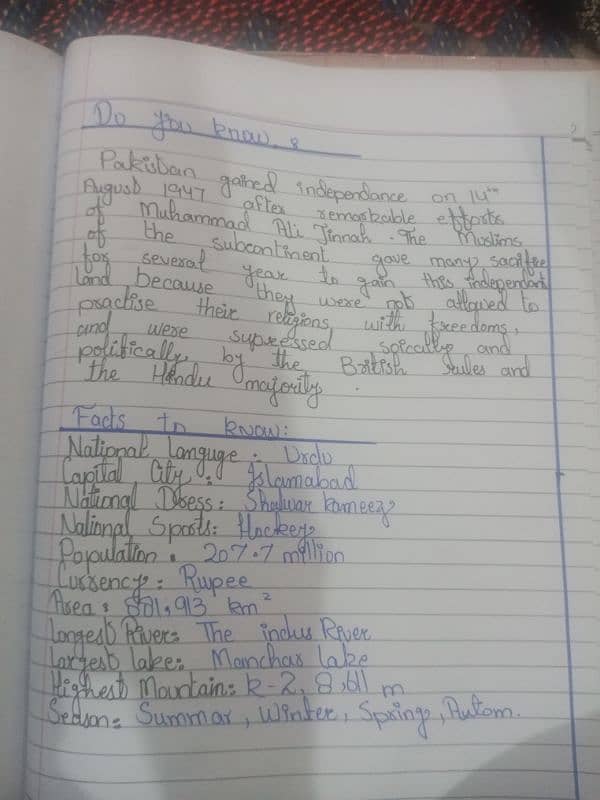 Do you know :
Pakistan gained independance on 14th
August 1947 after remarkable efforts
of Muhammad Ali Jinnah. The Muslims
of the subcontinent gave many sacrifice
for several year to gain this independant
land because they were not allowed to
practise their religions with freedoms,
and were supressed spically and
politically by the British rules and
the Hindu majority.
Facts to know:
National Languge: Urdu
Capital City: Islamabad
National Dress: Shalwar kameez
National Sports: Hockey
Population: 207.7 million
Currency: Rupee
Area: 881,913 km²
Longest River: The indus River
Largest lake: Manchar lake
Highest Mountain: K-2, 8,611 m
Seasn: Summar, Winter, Spring, Autom.